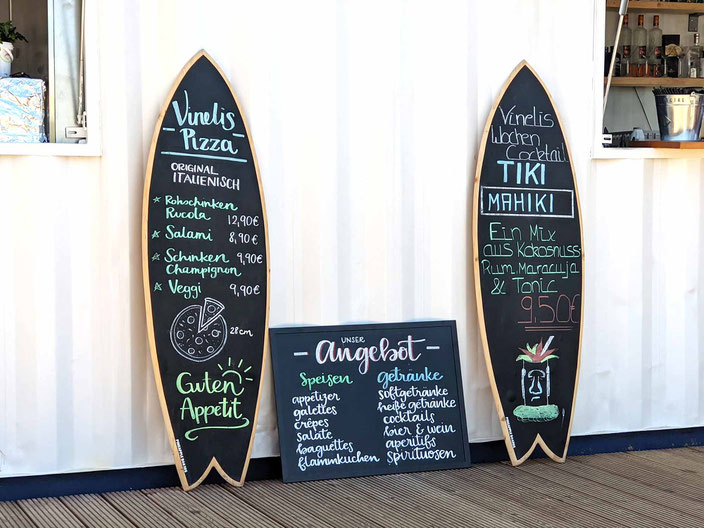 Vinelis
Pizza
ORIGINAL
ITALIENISCH
Rohschinken
Rucola 12,90€
Salami 8,90€
Schinken 9,90€
Champignon
Veggi 9,90€
28cm
Guten
Appetit
UNSER
Angebot
Speisen
appetizer
galettes
crêpes
salate
baguettes
flammkuchen
getränke
softgetränke
heiße getränke
cocktails
bier & wein
aperitifs
spirituosen
Vinelis
Wochen
Cocktail
TIKI
MAHIKI
Ein Mix
aus Kokosnuss-
Rum, Maracuja
& Tonic
9,50€